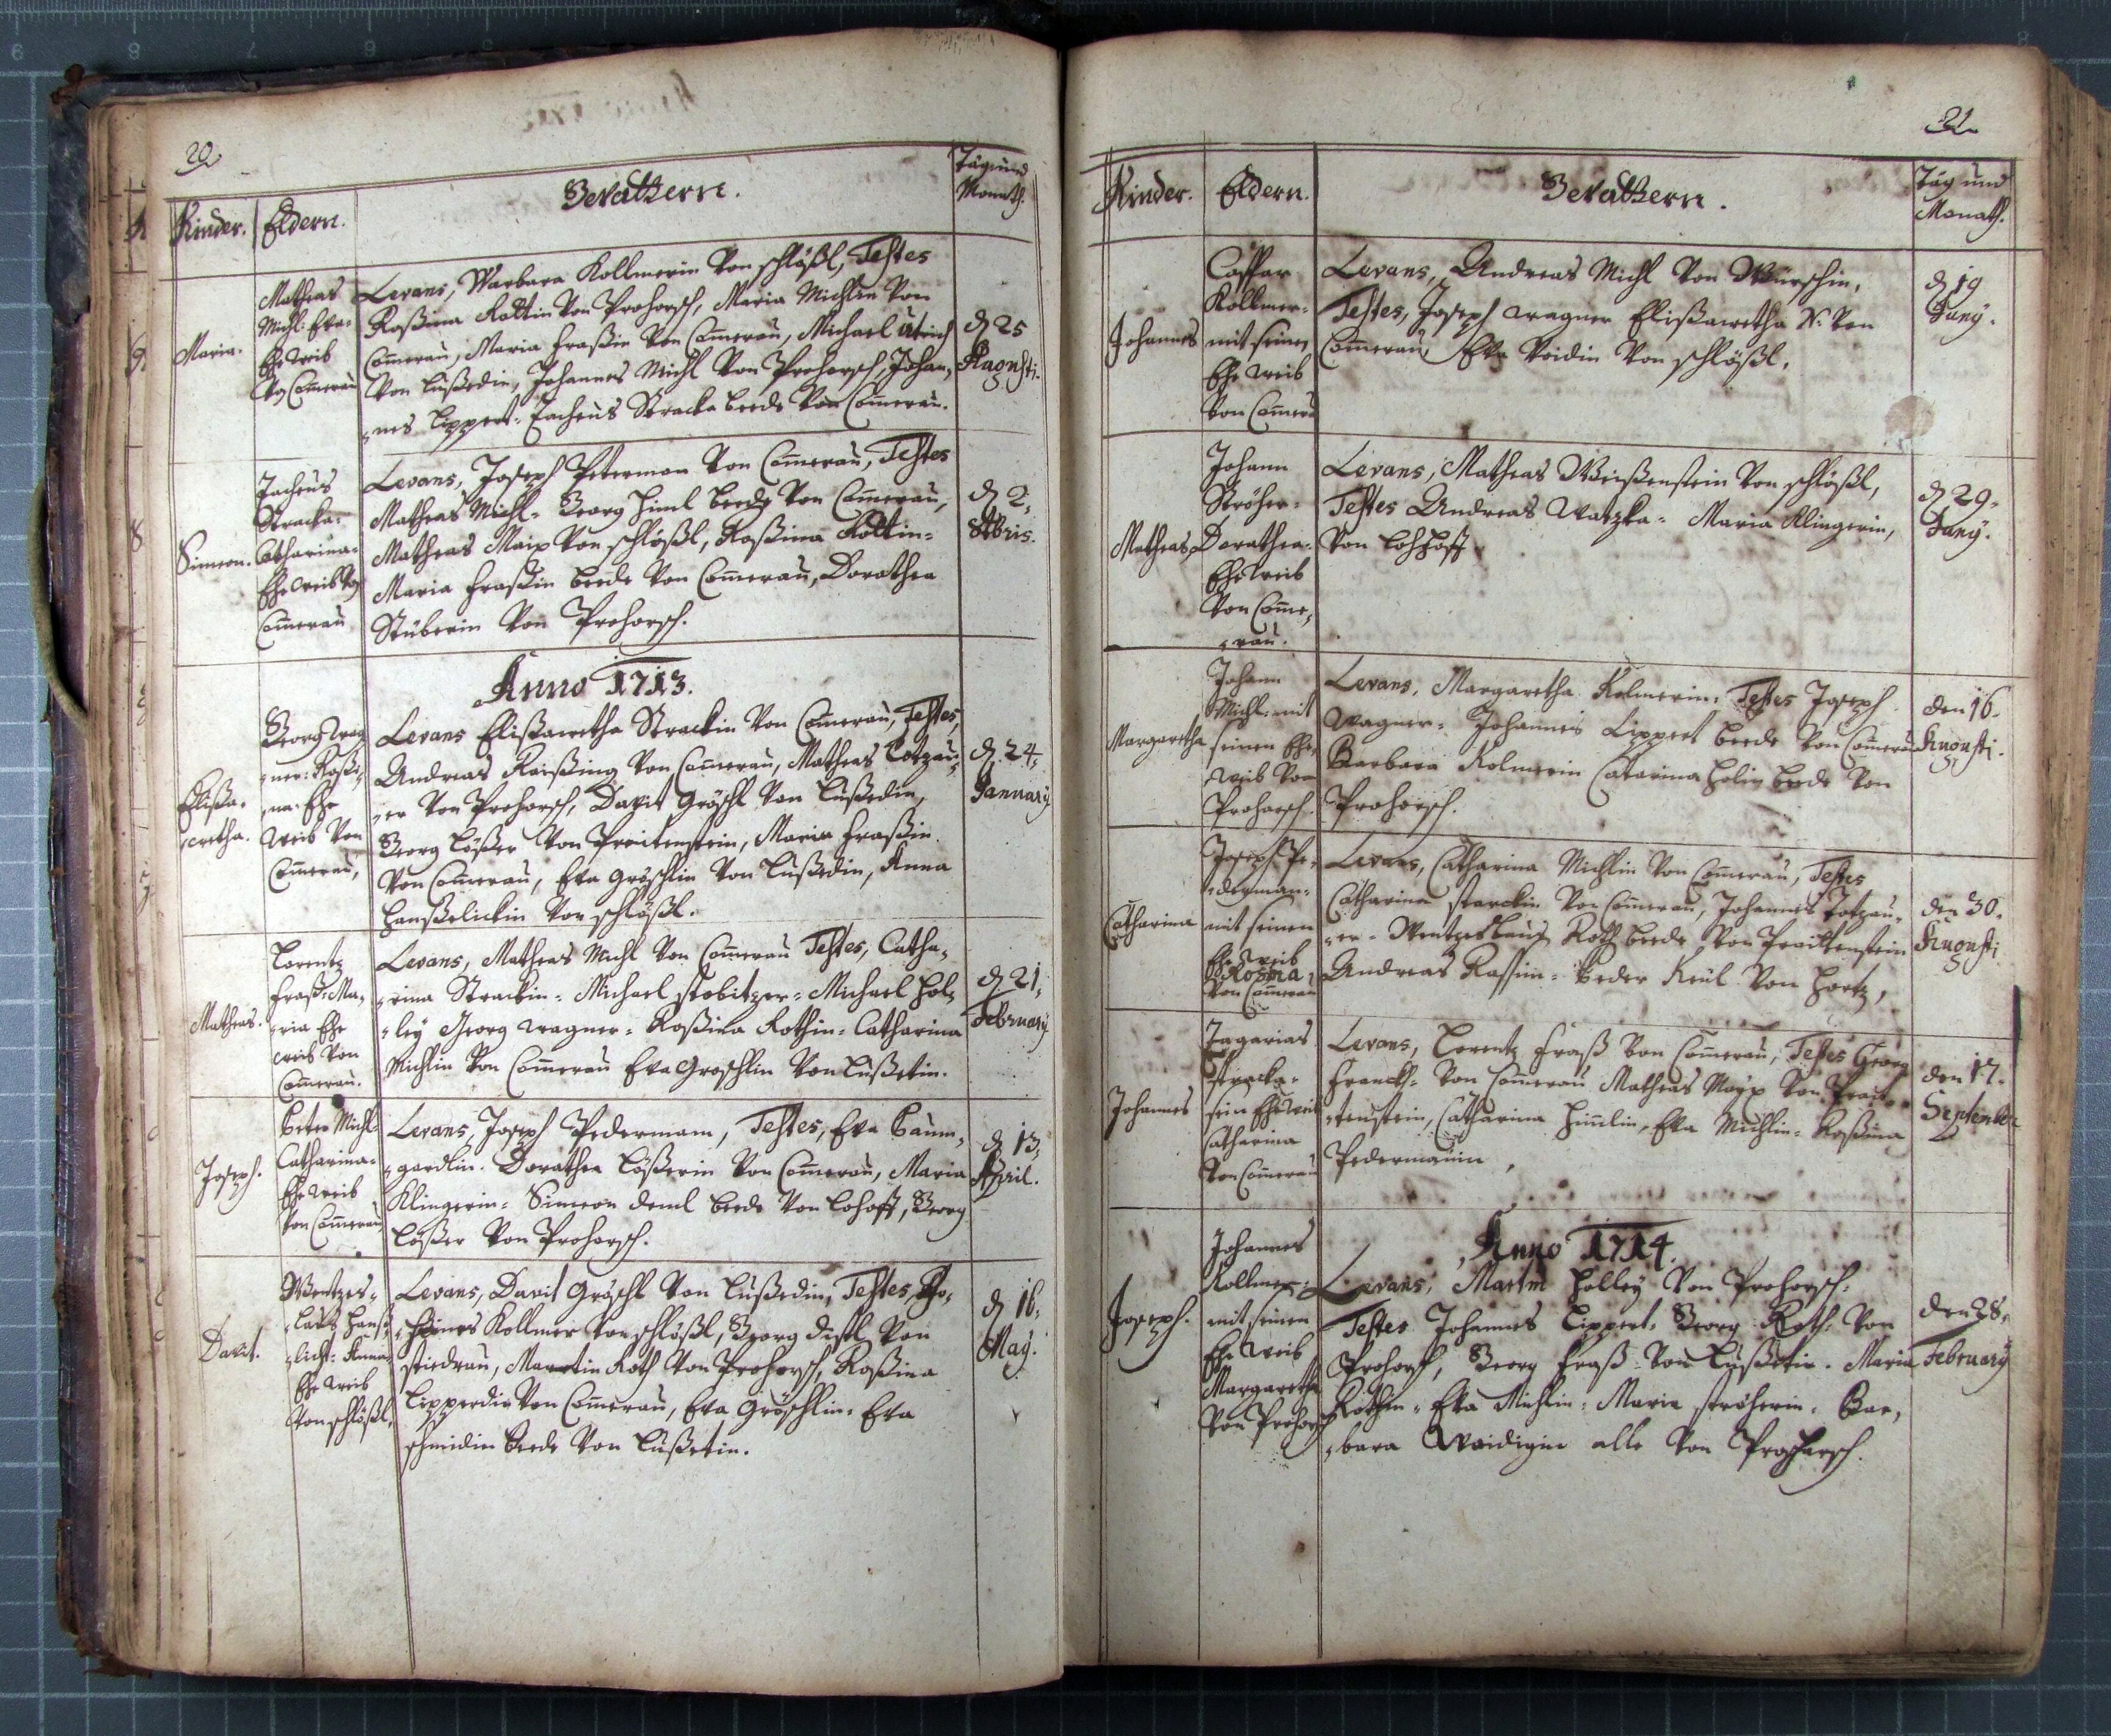 20
Kinder. Eldern. Gevattern. Tag und Monath.
Maria.
Matheas
Michl: Eva:
Ehe weib
Von Comerau
Levans, Barbara Kollmerin Von schlößl, Testes
Rosina Rottin Von Prohorsch, Maria Michlin Von
Comerau, Maria fraßin Von Comerau, Michael
Von Lußedin, Johannes Michl Von Prohorsch, Johan,
nes Lippert: Zacheus Stracka beede Von Comerau.
d 25
Augusti.
Simeon.
Zacheus
Stracka:
Catharina:
Ehe weib Von
Comerau
Levans, Joseph Peterman Von Comerau, Testes
Matheas Michl: Georg himl beede Von Comerau,
Matheas Maix Von schlößl, Roßina Rottin:
Maria fraßin beede Von Comerau, Dorothea
Stüberin Von Prohorsch.
d 2,
8bris.
Anno 1713.
Elißa,
wetha.
Georg Wag
ner: Roßi,
na: Ehe
Weib Von
Comerau,
Levans Elißawetha Strackin Von Comerau, Testes,
Andreas Raißing Von Comerau, Matheas Totzau,
er Von Prohorsch, Davit Gröschl Von Lußedin,
Georg Lößer Von Preitenstein, Maria fraßin
Von Comerau, Eva Gröschlin Von Lußedin, Anna
hanßelickin Von schlößl.
d. 24,
January
Matheas.
Lorentz
fraß: Ma,
ria Ehe
weib Von
Comerau.
Levans, Matheas Michl Von Comerau Testes, Catha,
rina Strackin: Michael stobitzer: Michael hol,
ley Georg wagner: Roßina Rothin: Catharina
Michlin Von Comerau Eva Groschlin Von Lußetin.
d. 21,
February
Joseph.
Peter Michl:
Catharina:
Ehe weib
Von Comerau
Levans, Joseph Pedermann, Testes, Eva Baum,
gardlin. Dorathea Lößerin Von Comerau, Maria
Klingerin: Simeon deml beede Von Lohoff, Georg
Lößer Von Prohorsch.
d 13,
April.
Davit.
Wentzes,
laus hanß
lick: Anna
Ehe weib
Von schlößl,
Levans, Davit Gröschl Von Lußedin, Testes, Jo,
hannes Kollmer Von schlößl, Georg distl Von
stiedrau, Martin Roth Von Prohorsch, Roßina
Lipperdin Von Comerau, Eva Gröschlin: Eva
schmidin beede Von Lußetin.
d 16,
May.
21
Kinder. Eldern. Gevattern. Tag und
Monath.
Johannes
Casspar
Kollmer:
mit seiner
Ehe weib
Von Comerau
Levans, Andreas Michl Von Würschin,
Testes, Joseph wagner Elißawetha N: Von
Comerau Eva Voidin Von schlößl.
d 19
Juny.
Matheas
Johann
Ströher:
Dorathea:
Ehe weib
Von Come,
rau.
Levans, Matheas Weißenstein Von schlößl,
Testes Andreas Watzka: Maria Klingerin,
Von Lohhoff
d 29.
Juny.
Margaretha
Johann
Michl: mit
seinen Ehe,
weib Von
Prohorsch.
Levans, Margaretha Kolmerin: Testes Joseph
wagner: Johannes Lippert beede Von Comerau
Barbara Kolmerin Catarina holin beede Von
Prohorsch.
den 16.
Augusti.
Catharina
Joseph Pe,
derman:
mit seinen
Ehe weib
Rosina
Von Comerau
Levans, Catharina Michlin Von Comerau, Testes
Catharina starckin Von Comerau, Johannes Totzau,
er: Wentzeslaus Roth beede Von Preittenstein
Andreas Rassim: Peder Keül Von Hortz,
den 30.
Augusti
Johannes
Zagarias
stracka:
sein Ehe weib
Catharina
Von Comerau
Levans, Lorentz fraß Von Comerau, Testes Georg
Franckh: Von Comerau Matheas Mayx Von Preit,
tenstein, Catharina himlin, Eva Michlin: Roßina
Pedermanin,
den 17.
September
Anno 1714.
Joseph.
Johannes
Kollmer:
mit seinen
Ehe weib
Margaretha
Von Prohorsch
Levans, Martin Holley Von Prohorsch,
Testes Johannes Lippert: Georg Roth: Von
Prohorsch, Georg fraß: Von Lußetin. Maria
Rothin: Eva Michlin: Maria ströherin: Bar,
bara Waidigin alle Von Prohorsch.
den 28,
February